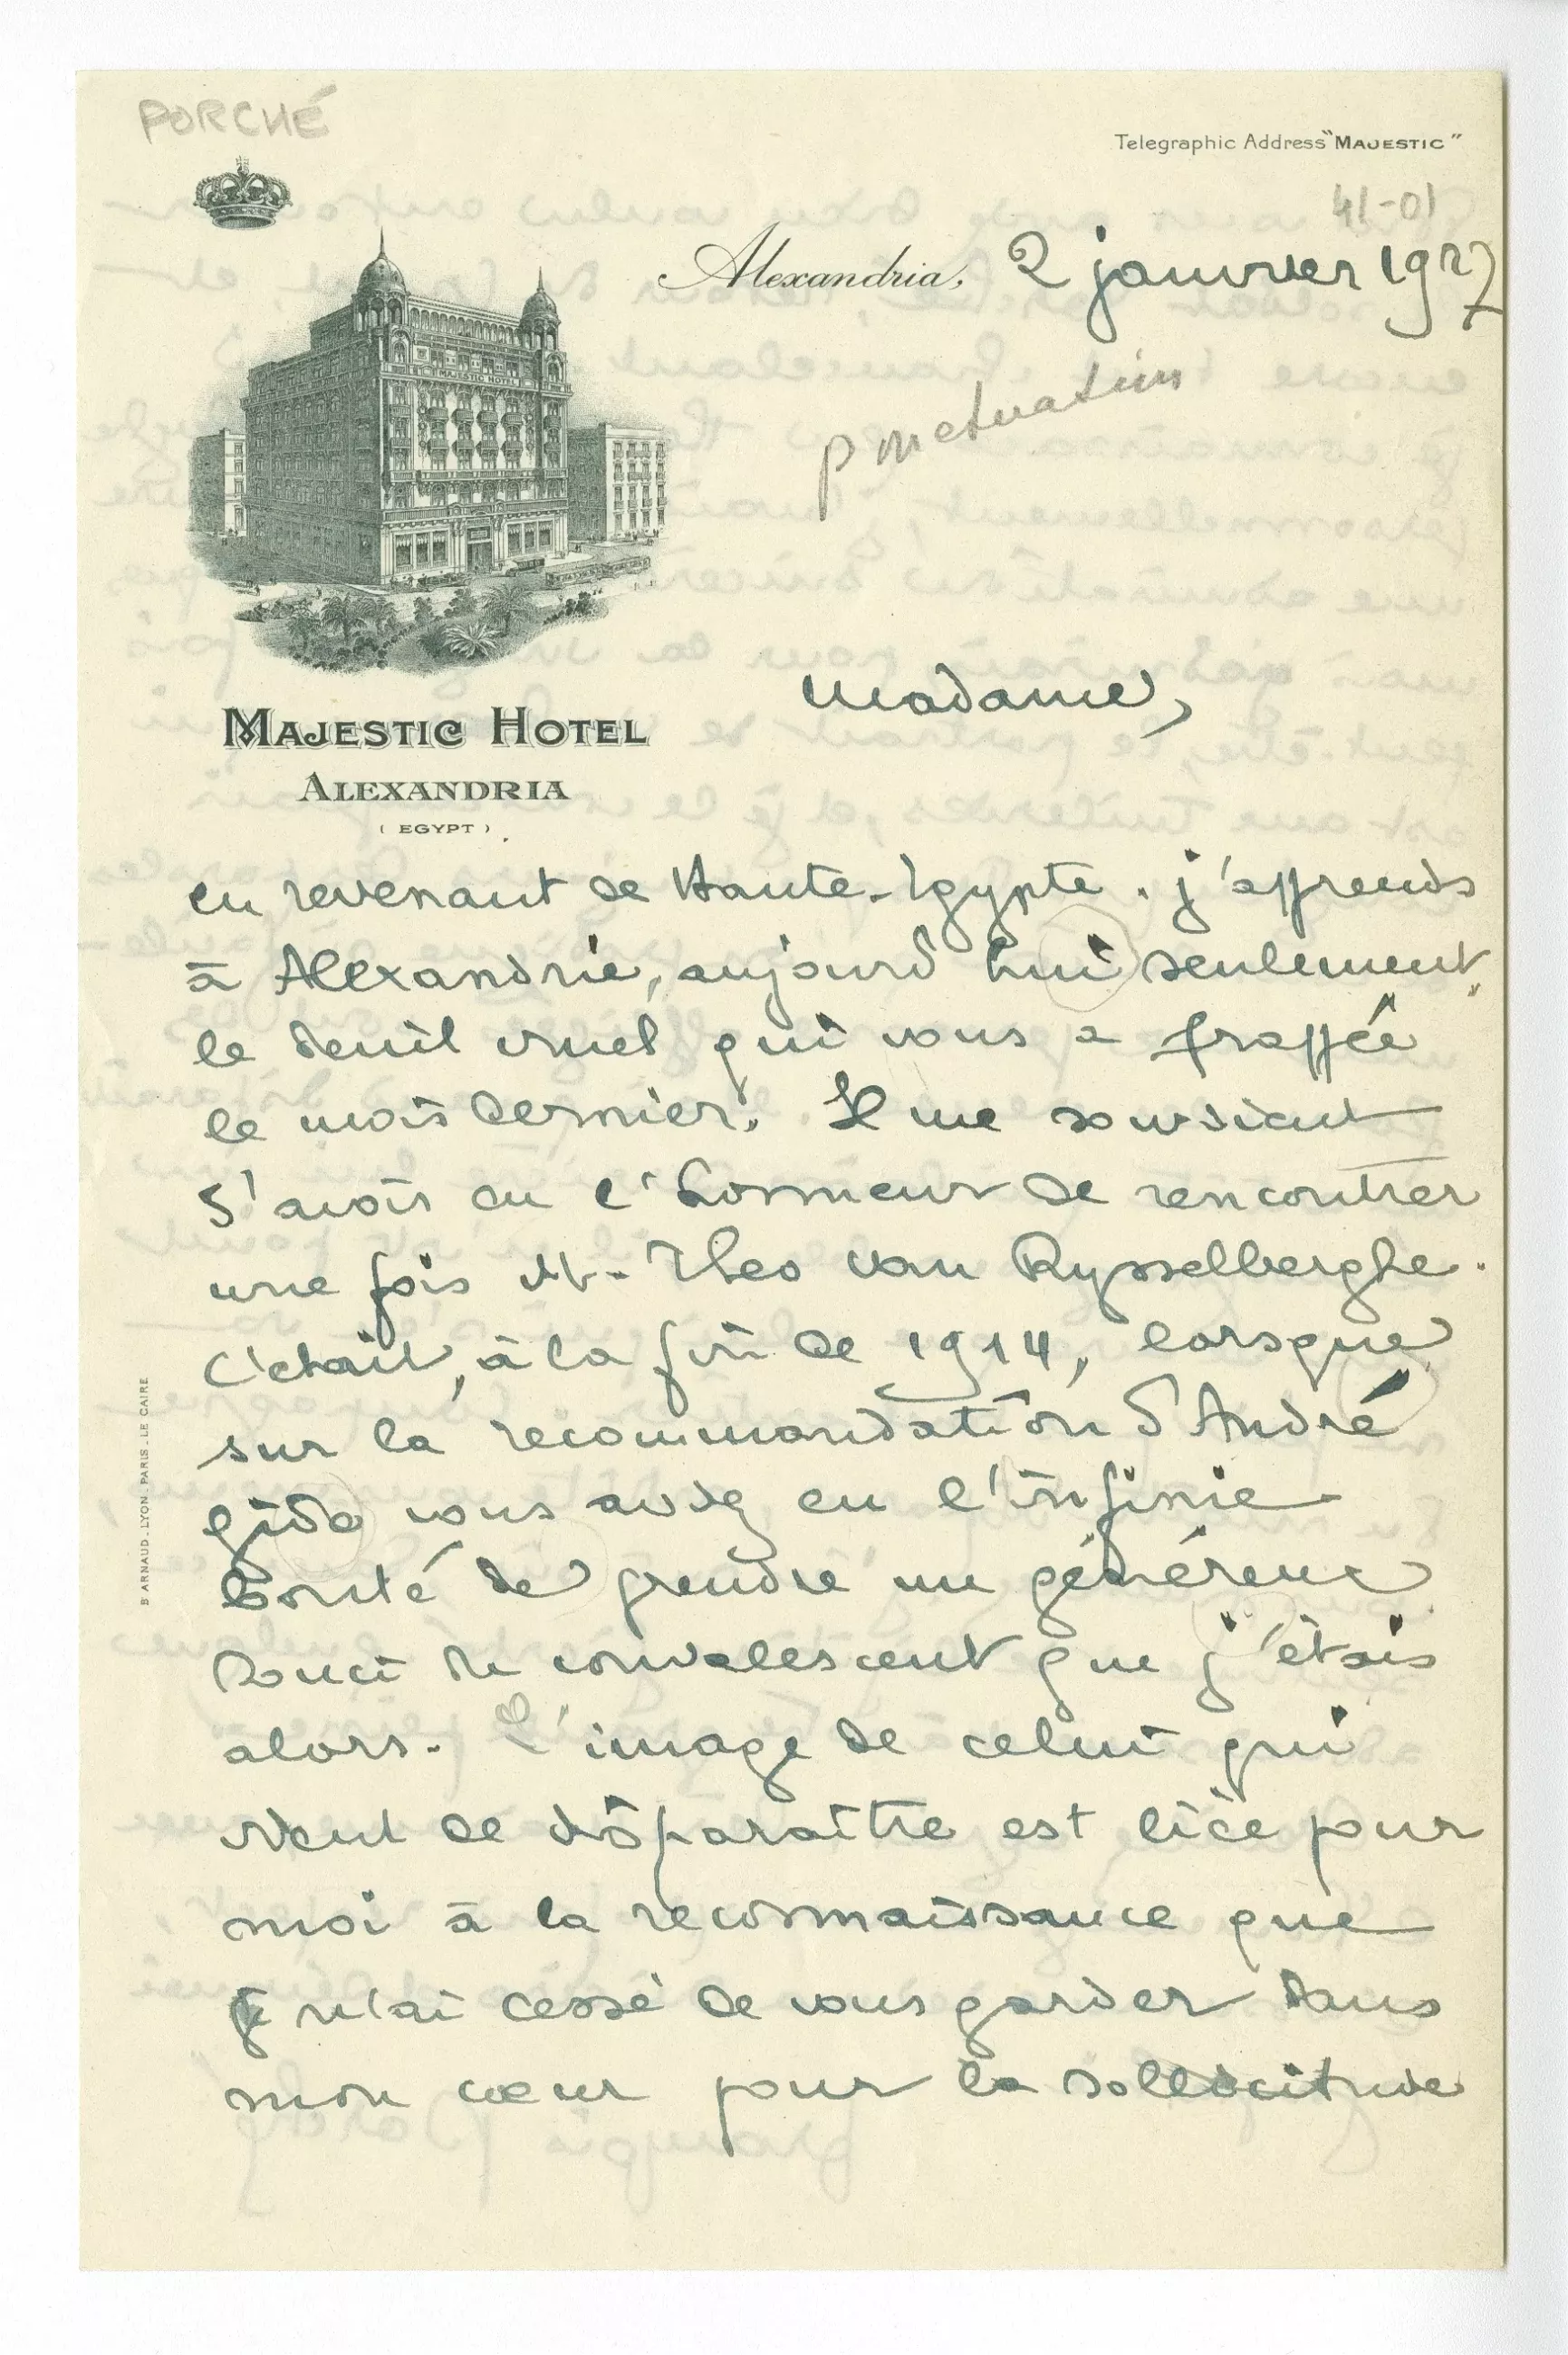 PORCHÉ
Telegraphic Address "MAJESTIC"
41-01
Alexandria, 2 janvier 1927
ponctuation
MAJESTIC HOTEL
MAJESTIC HOTEL
ALEXANDRIA
( EGYPT )
Madame,
en revenant de Haute-Egypte. j'apprends
à Alexandrie, aujourd'hui seulement,
le deuil cruel qui vous a frappée
le mois dernier. Il me souvient
d'avoir eu l'honneur de rencontrer
une fois M. Theo van Rysselberghe.
C'était, à la fin de 1914, lorsque
sur la recommandation d'André
gide vous avez eu l'infinie
bonté de prendre un généreux
souci du convalescent que j'étais
alors. L'image de celui qui
vient de disparaître est liée pour
moi à la reconnaissance que
je n'ai cessé de vous garder dans
mon cœur pour la sollicitude
B. ARNAUD. LYON. PARIS. LE CAIRE